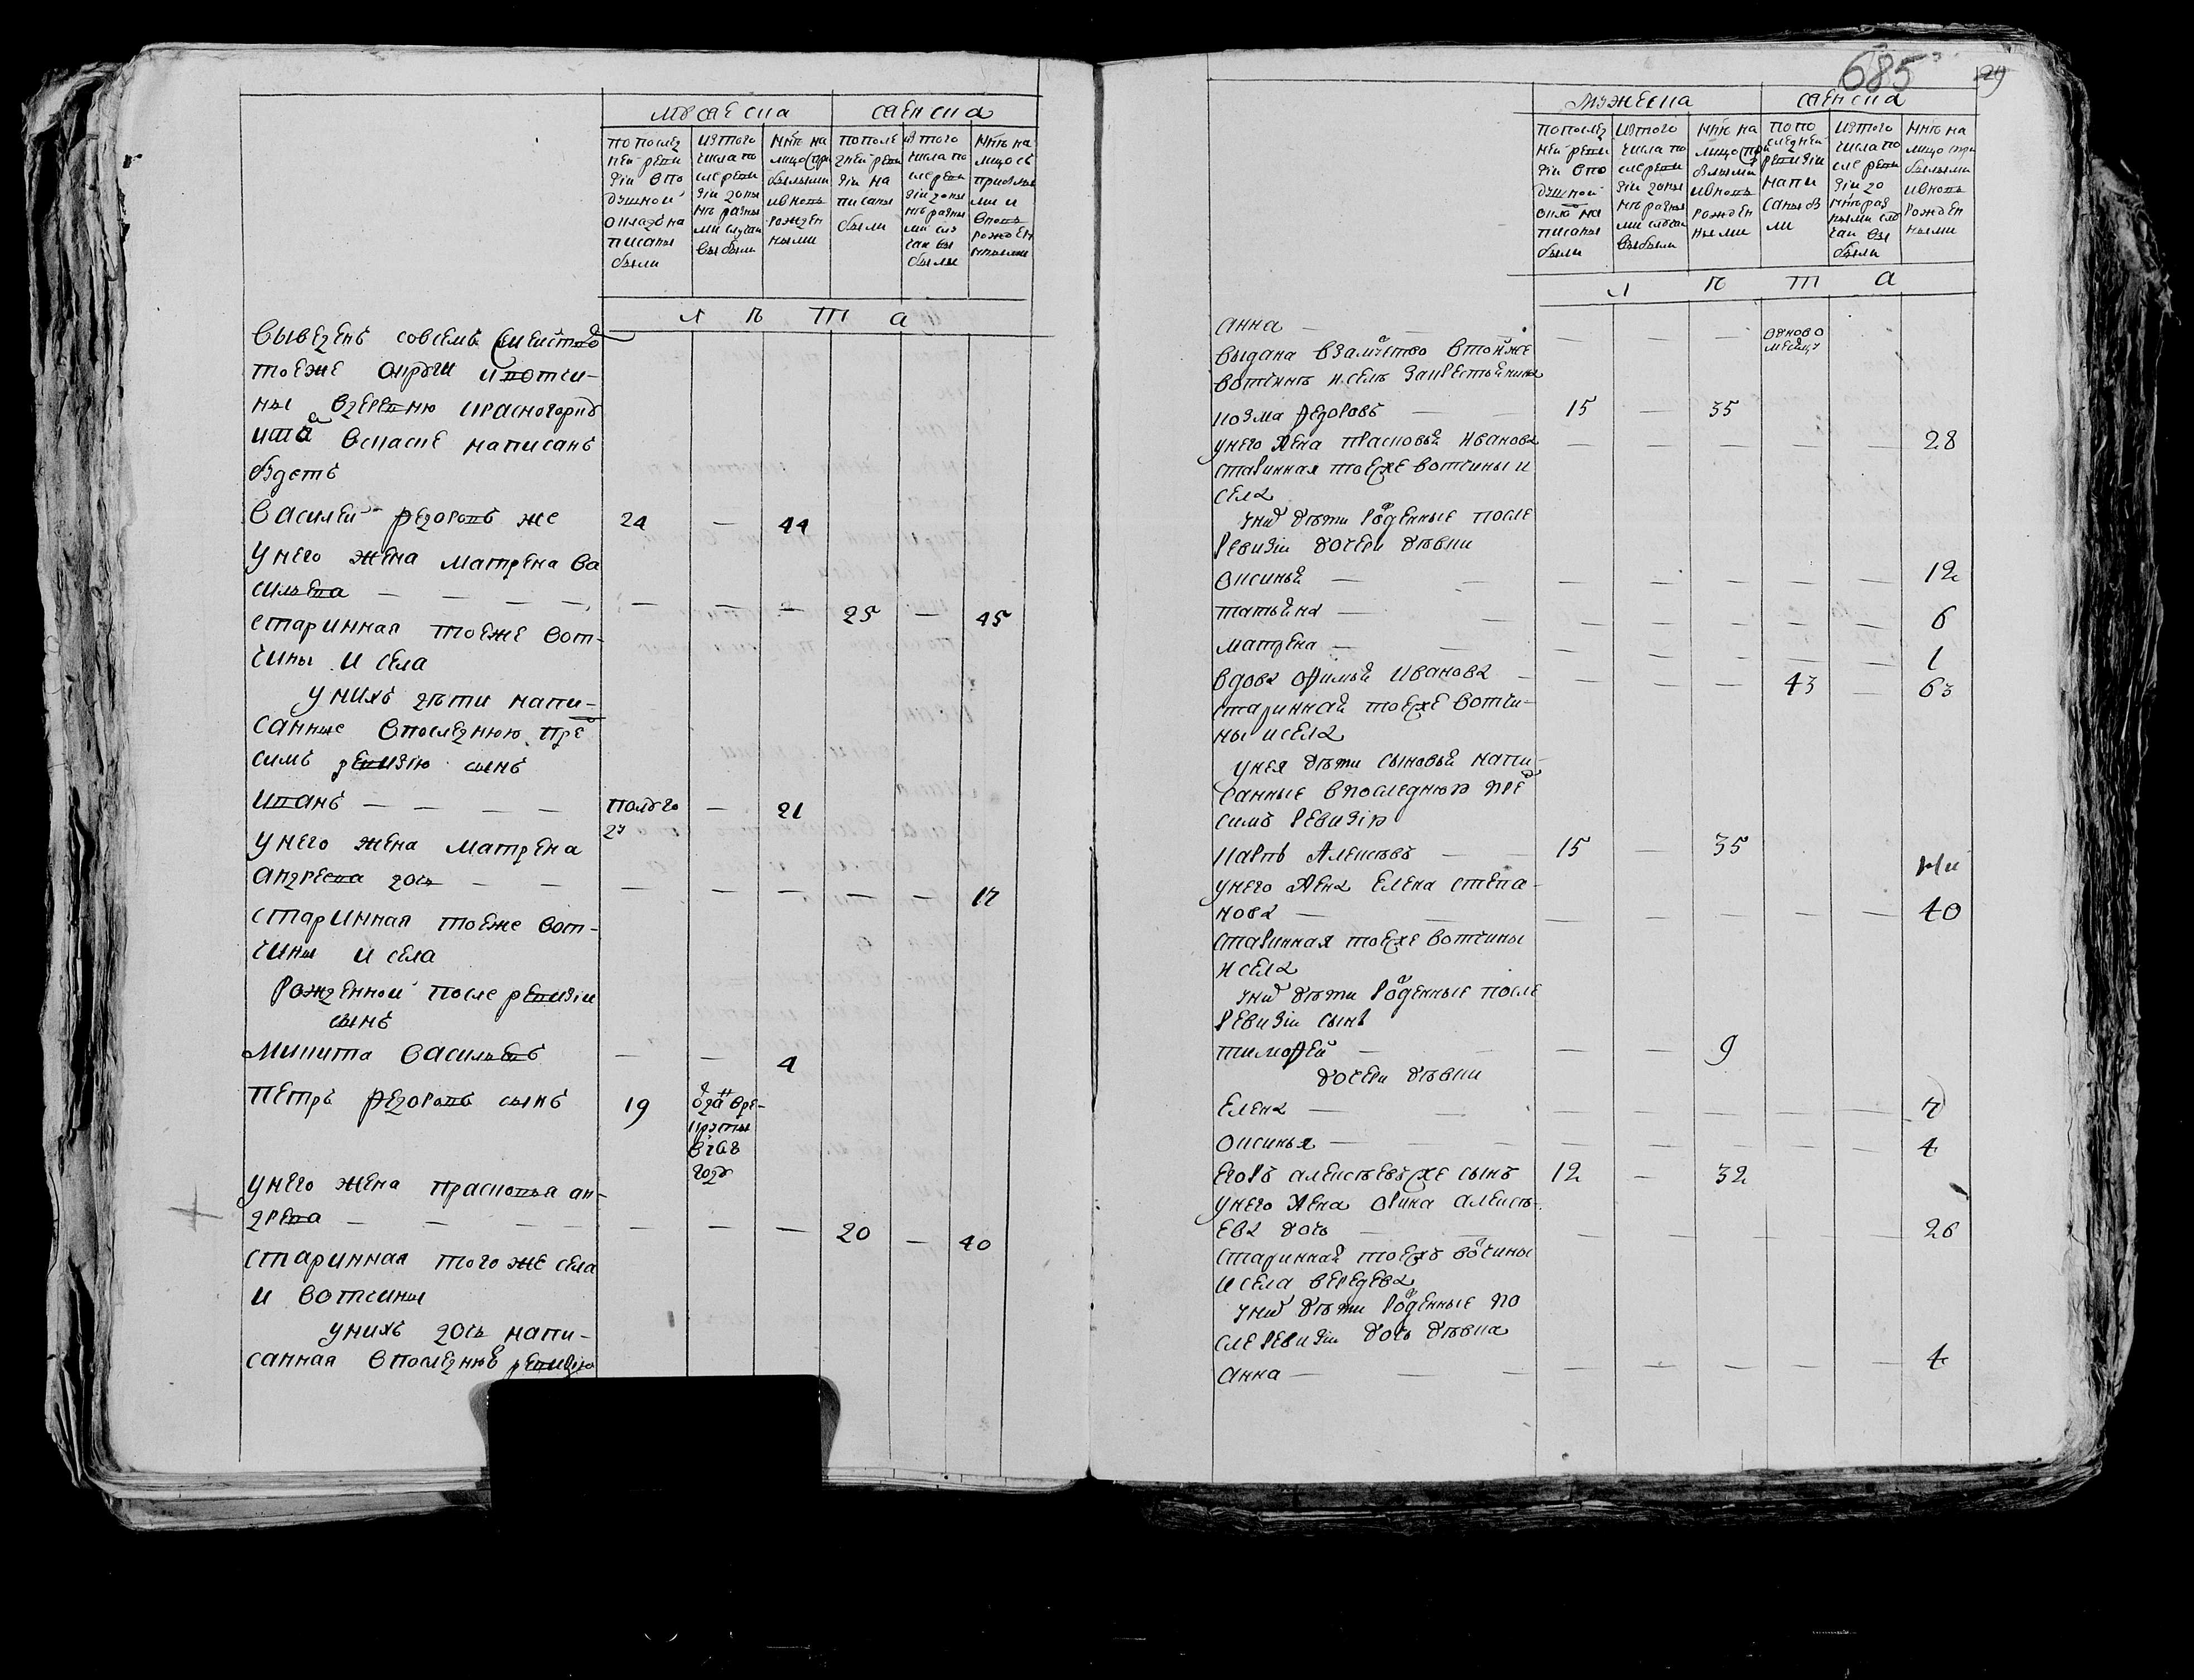 мужеска женска
по послед
ней реви
зіи в по
душной
оклад на
писаны
были
из того
числа по
сле реви
зіи до ны
нѣ разны
ми случаи
выбыли
ннѣ на
лицо с при
былыми
и вновь
рожден
ными
по послѣ
дней реви
зіи на
писаны
были
из того
числа по
сле реви
зіи до ны
нѣ разны
ми слу
чаи вы
были
ннѣ на
лицо съ
прибылы
ми и
вновь
рожден
ными
л ѣ т а
вывезенъ совсемъ семейство
тоеже округи и вотчи-
ны в деревню
в сказке написанъ
будетъ
Василей Федоровъ же 24 — 44
у него жена Матрена Ва
сильева — — — — — — — 25 — 45
старинная тоеже вот-
чины и села
у нихъ дѣти напи-
санные в последнюю пре
симъ ревизію сынъ
Иванъ — — — — полуго — 21
ду
у него жена Матрена
Андреева дочь — — — — — — — 17
старинная тоеже вот-
чины и села
рожденной после ревизіи
сынъ
Микита Васильевъ — — 4
Петръ Федоровъ сынъ 19 в ре-
круты
в
году
у него жена Прасковья Ан-
дреева — — — — — — — 20 — 40
старинная того же села
и вотчины
у нихъ дочь напи-
санная в последнюю ревизію
685
мужеска женска
по послед
ней реви
зіи в по
душной
оклад на
писаны
были
из того
числа по
сле реви
зіи до ны
нѣ разны
ми случаи
выбыли
ннѣ на
лицо с при
былыми
и вновь
рожден
ными
по по
следней
ревизіи
напи
саны бы
ли
из того
числа по
сле реви
зіи до
ннѣ раз
ными слу
чаи вы
были
ннѣ на
лицо с при
былыми
и вновь
рожден
ными
л ѣ т а
Анна — — — — — — одново
месяцу
выдана в замужство в той же
вотчинѣ и селѣ за крестьянина
Козма Федоровъ — — 15 — 35
у него жена Прасковья Иванова — — — — — 28
старинная тоеже вотчины и
села
у них дѣти рожденные после
ревизіи дочери дѣвки
Оксинья — — — — — — — 12
Татьяна — — — — — — — 6
Матрена — — — — — — — 1
вдова Офимья Иванова — — — — 43 — 63
старинная тоеже вотчи-
ны и села
у нея дѣти сыновья напи-
санные в последнюю пре
симъ ревизію
Алексѣевъ — — 15 — 35
у него жена Елена Степа-
нова — — — — — — — 40
старинная тоеже вотчины
и села
у них дѣти рожденные после
ревизіи сынъ
Тимофей — — — — 9
дочери дѣвки
Елена — — — — — — — 7
Оксинья — — — — — — — 4
Егоръ Алексѣевъ же сынъ 12 — 32
у него жена Орина Алексѣ-
ева дочь — — — — — — — 26
старинная тоежъ вотчины
и села Вередева
у них дѣти рожденные по
сле ревизіи дочь дѣвка
Анна — — — — — — — — 4